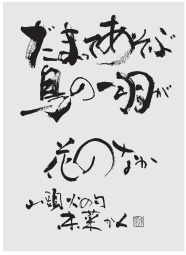 だまってあそぶ
鳥の一羽が
花のなか
山頭火の句
未菜かく